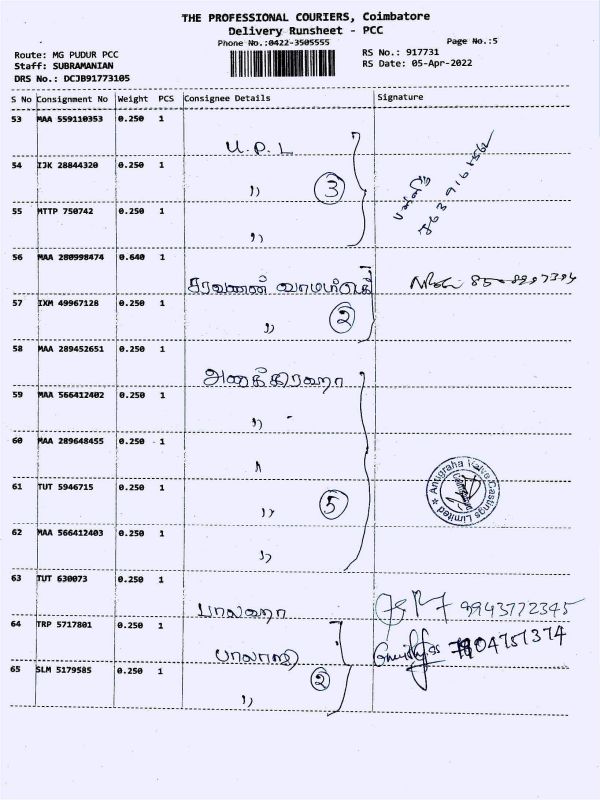 THE PROFESSIONAL COURIERS, Coimbatore
Delivery Runsheet - PCC
Phone No.:0422-3505555
Page No.:5
Route: MG PUDUR PCC
RS No.: 917731
Staff: SUBRAMANIAN
RS Date: 05-Apr-2022
DRS No.: DCJB91773105
S No Consignment No Weight PCS Consignee Details Signature
53 MAA 559110353 0.250 1
U.P.L
54 IJK 28844320 0.250 1
")
3
55 MTTP 750742 0.250 1
")
56 MAA 280998474 0.640 1
சரவணன்
57 IXM 49967128 0.250 1
")
2
58 MAA 289452651 0.250 1
அனுக்கிரஹா
59 MAA 566412402 0.250 1
")
60 MAA 289648455 0.250 1
61 TUT 5946715 0.250 1
")
5
Anugraha Valve Castings Limited
62 MAA 566412403 0.250 1
")
63 TUT 630073 0.250 1
9943772345
64 TRP 5717801 0.250 1
பாலாஜி
04751374
65 SLM 5179585 0.250 1
2
")